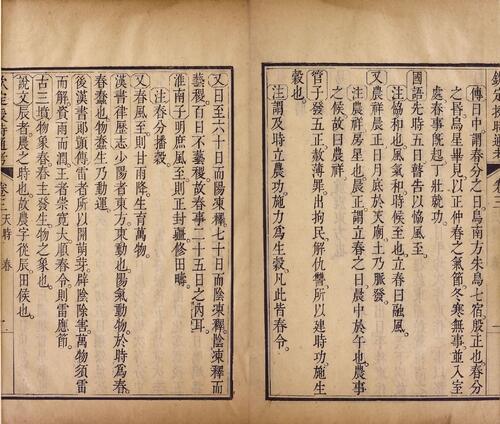 傳日中謂春分之日。鳥南方朱鳥七宿。殷正也。春分
之昏。鳥星畢見。以正仲春之氣節。冬寒無事。並入室
處。春事既起。丁壯就功。
國語先時五日。瞽告以協風至。
注協和也。風氣和。時候至也。立春曰融風。
又農祥晨正。日月底於天廟。土乃脈發。
注農祥房星也。晨正謂立春之日。晨中於午也。農事
之候。故曰農祥
管子發五正。赦薄罪。出拘民。解仇讐。所以建時功。施生
穀也。
注謂及時立農功。施力為生穀。凡此皆春令。
又日至六十日而陽凍釋。七十日而陰凍釋。陰凍釋而
藝稷。百日不藝稷。故春事二十五日之內耳。
淮南子明庶風至。則正封疆。修田疇。
注春分播穀。
又春風至則甘雨降。生育萬物。
漢書律歷志少陽者東方。東動也。陽氣動物。於時為春。
春蠢也。物蠢生乃動運。
後漢書郎顗傳雷者所以開萌芽。辟陰除害。萬物須雷
而解。資雨而潤。王者崇寬大。順春令。則雷應節。
古三墳物象春。春主發生。物之象也。
說文辰者。農之時也。故農字從辰。田候也。
欽定授時通考 卷三 天時 春 一